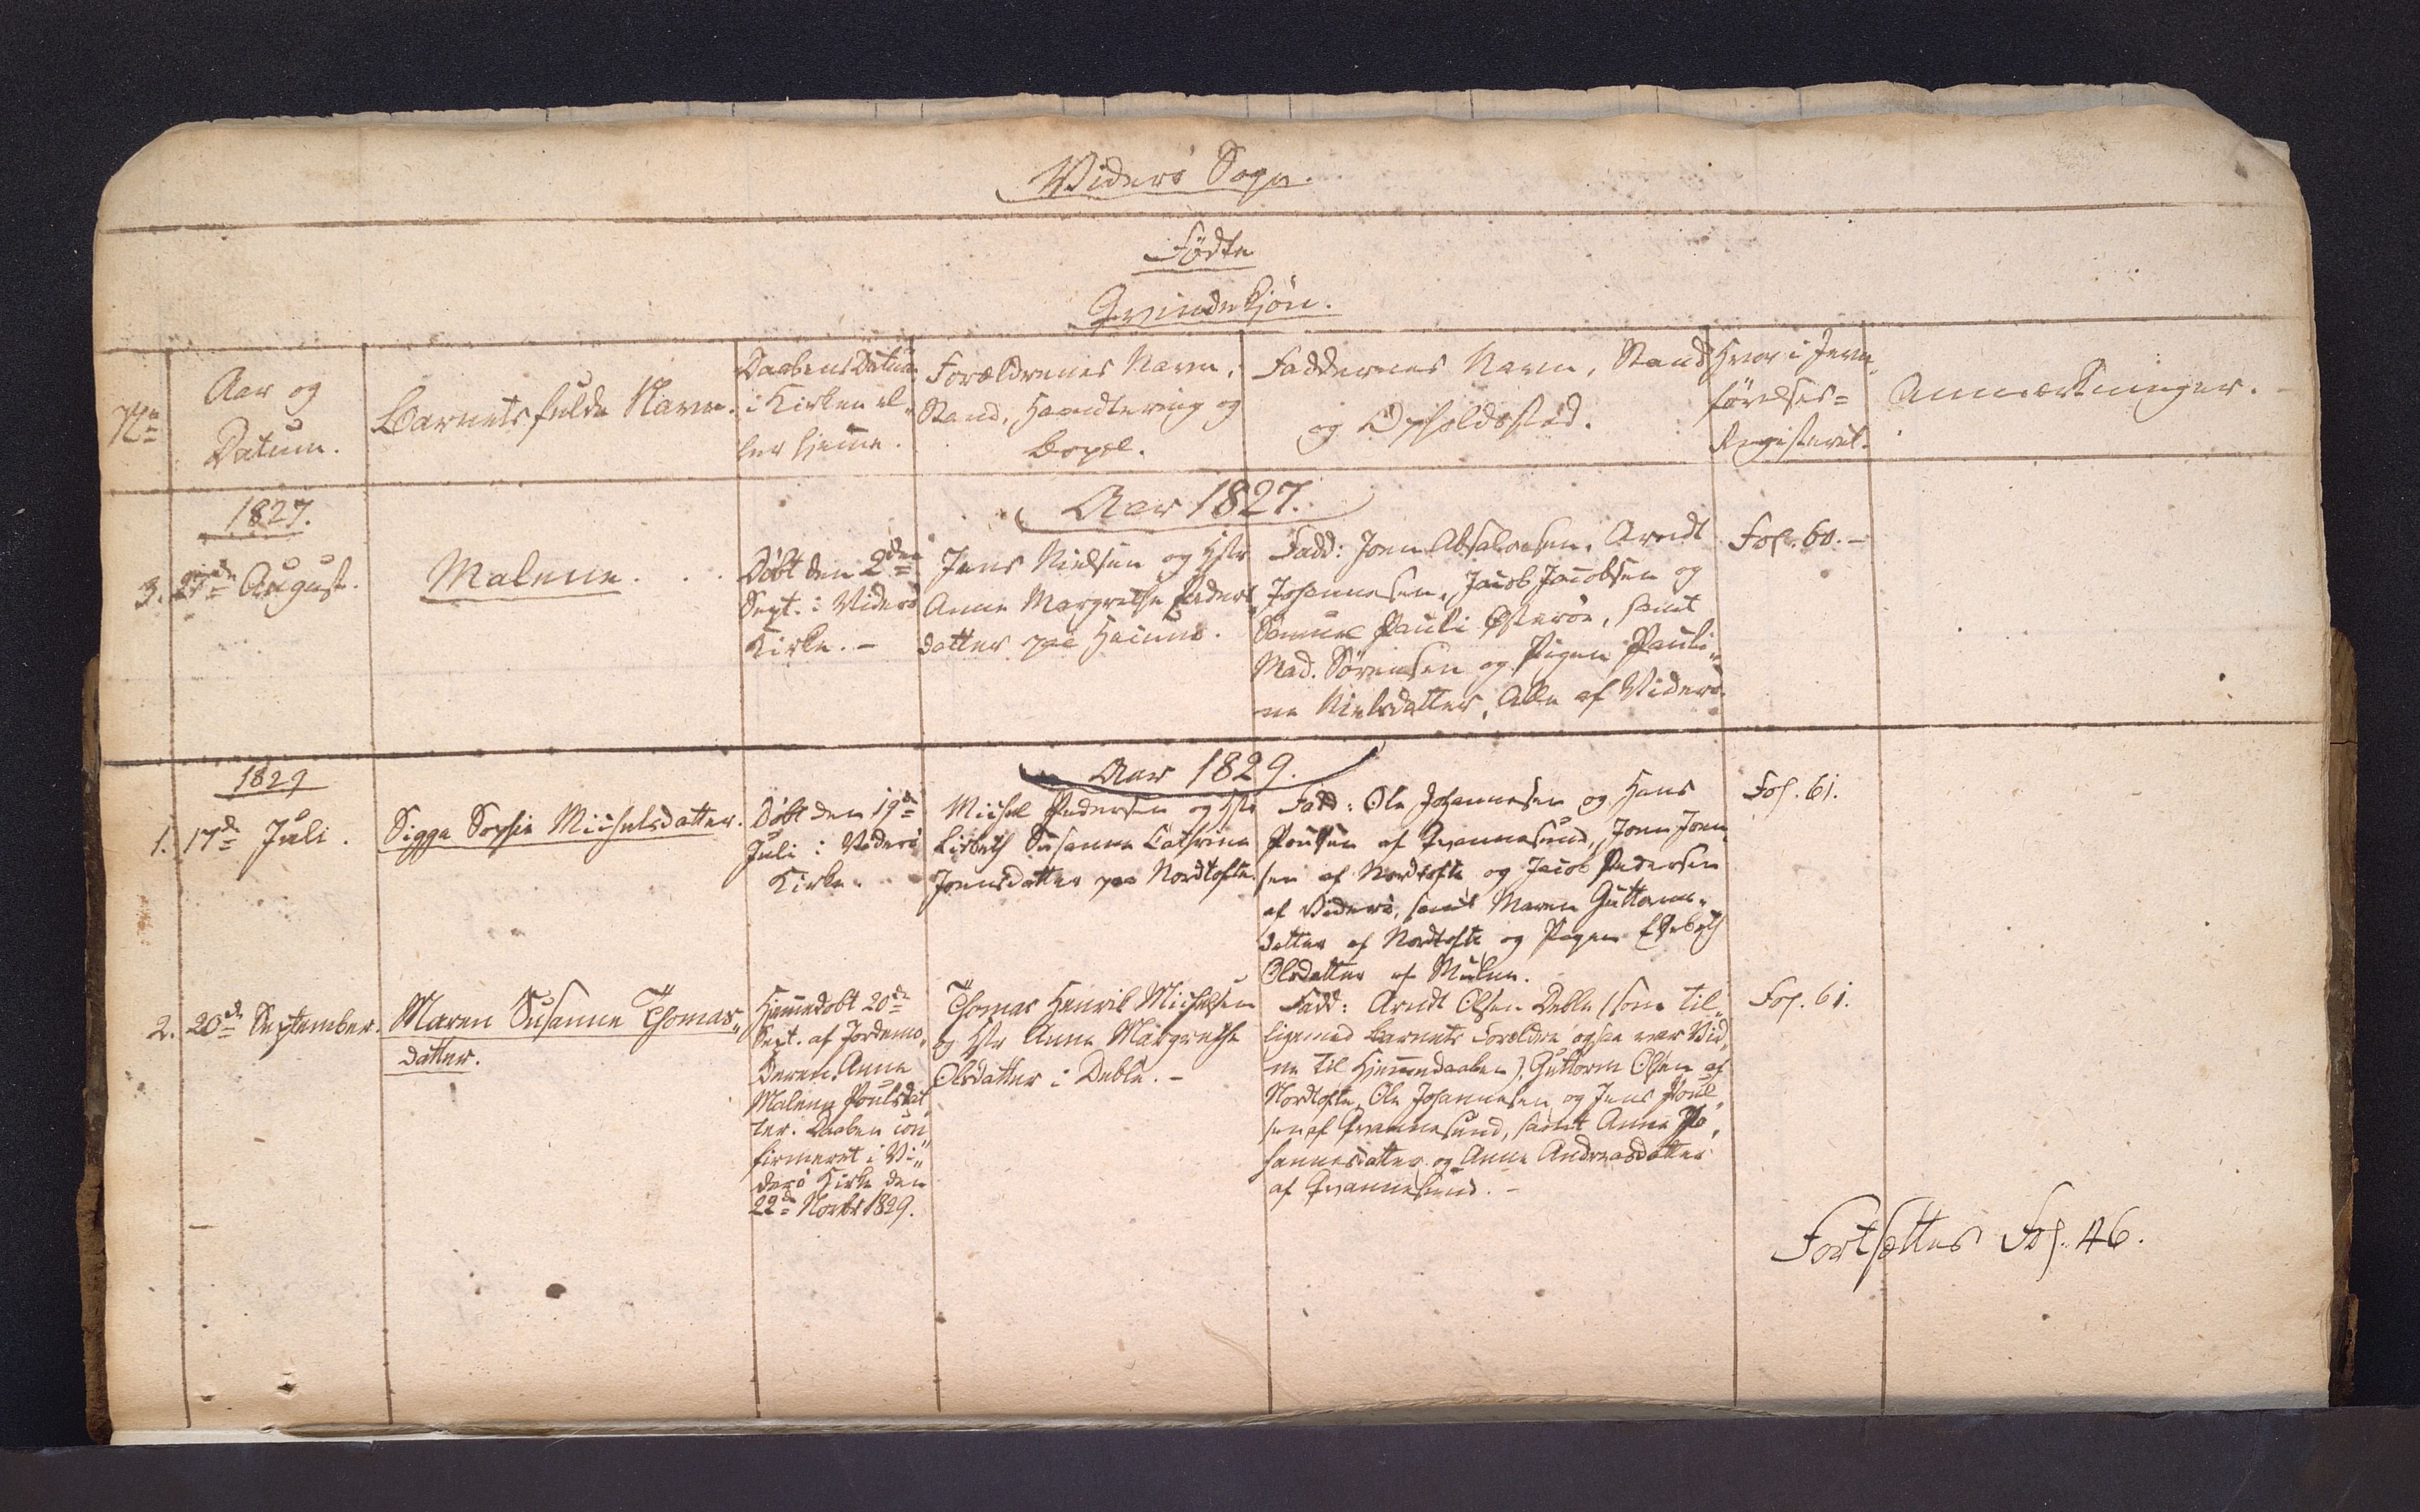 Viderø Sogn.
Födte
Qvindekjön.
No
Aar og
Datum.
Barnets fulde Navn.
Daabens Datum
i Kirken el„
ler hjemme.
Forældrenes Navn,
Stand, Handtering og
Bopæl.
Faddernes Navn, Stand
og Opholdssted.
Hvor i Jevn„
förelses=
Registeret.
Anmærkninger.
Aar 1827.
1827.
3. 27de August.
Malene.
Döbt den 2den
Sept. i Viderø
Kirke. -
Jens Nielsen og Hstr
Anne Margrethe Peders„
datter paa
Fadd: Joen Absalonsen, Arndt
Johannesen, Jacob Jacobsen og
Samuel Pauli Østeröe, samt
Mad. Sörensen og Pigen Pauli„
ne Nielsdatter, Alle af Viderø
Fol. 60. -
Aar 1829.
1829
1. 17de Juli.
Sigga Sophie Michelsdatter.
Döbt den 19de
Juli i Viderø
Kirke.
Michel Pedersen og Hstr
Lisbeth Susanne Cathrine
Joensdatter paa Nordtofte.
Fadd: Ole Johannesen og Hans
Poulsen af Qvannesund, Joen Joen„
sen af Nordtofte og Jacob Pedersen
af Viderø, samt Maren Guttorms„
datter af Nordtofte og Pigen Elsebeth
Olsdatter af Mulen.
Fol. 61.
2. 20de September.
Maren Susanne Thomas„
datter.
Hjemmedöbt 20de
Sept. af Jordemo„
deren Anne
Malene Poulsdat„
ter. Daaben con„
firmeret i Vi„
derø Kirke den
22de Novbr 1829.
Thomas Henrik Michelsen
og Hstr Anne Margrethe
Olsdatter i Deble. -
Fadd: Arndt Olsen Deble (som til„
ligemed Barnets Forældre ogsaa var Vid„
ne til Hjemmedaaben), Guttorm Olsen af
Nordtofte, Ole Johannesen og Jens Poul„
sen af Qvannesund, samt Anne Jo„
hannesdatter og Anne Andreasdatter
af Qvannesund. -
Fol. 61.
Fortsættes Fol. 46.